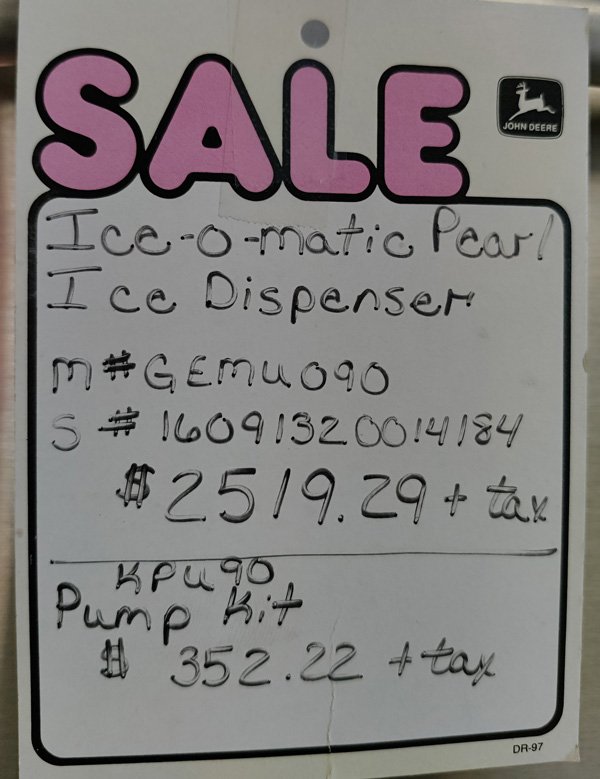 SALE
JOHN DEERE
Ice-o-matic Pearl
Ice Dispenser
M# GEMU090
S # 16091320014184
$2519.29 + tax
KPU90
Pump Kit
$ 352.22 + tax
DR-97